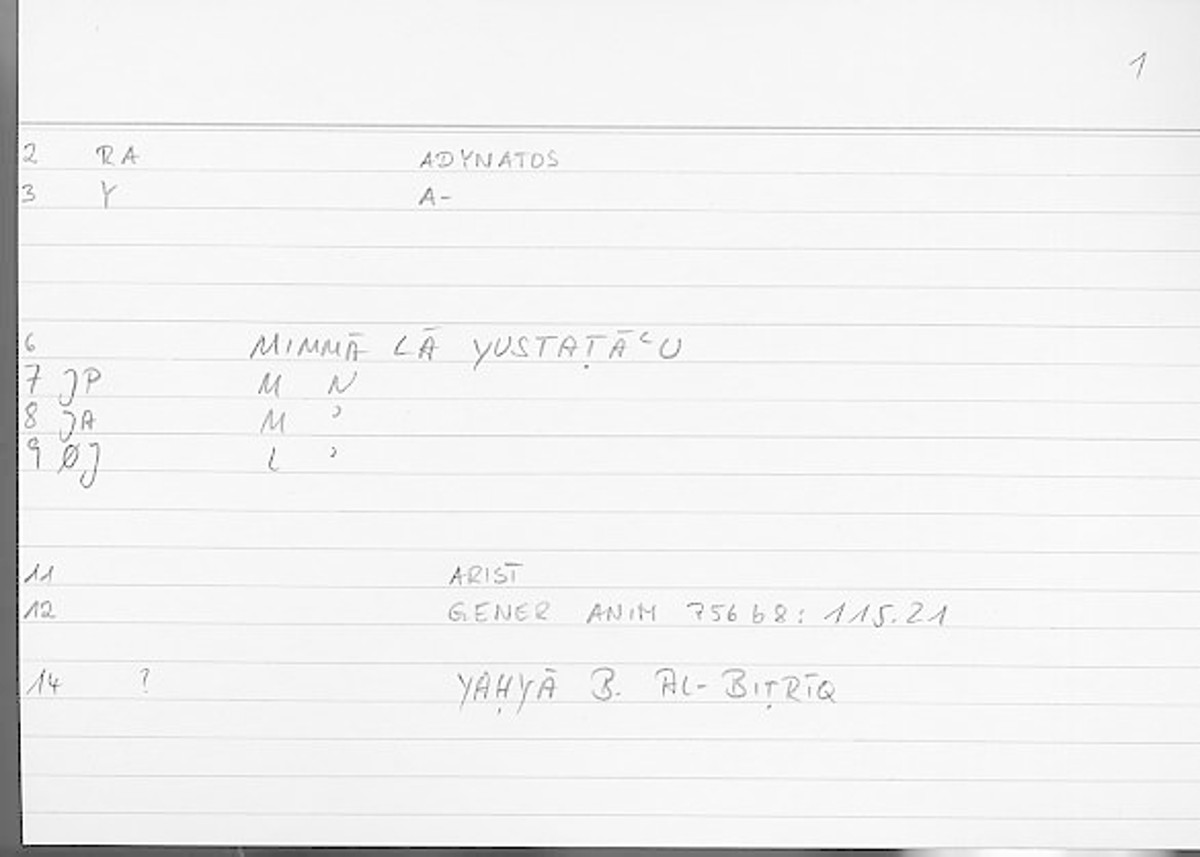 1
2 RA ADYNATOS
3 Y A-
6 MIMMĀ LĀ YUSTAṬĀʿU
7 JP M N
8 JA M ʾ
9 ØJ L ʾ
11 ARIST
12 GENER ANIM 756 b 8: 115.21
14 ? YAḤYĀ B. AL-BIṬRĪQ